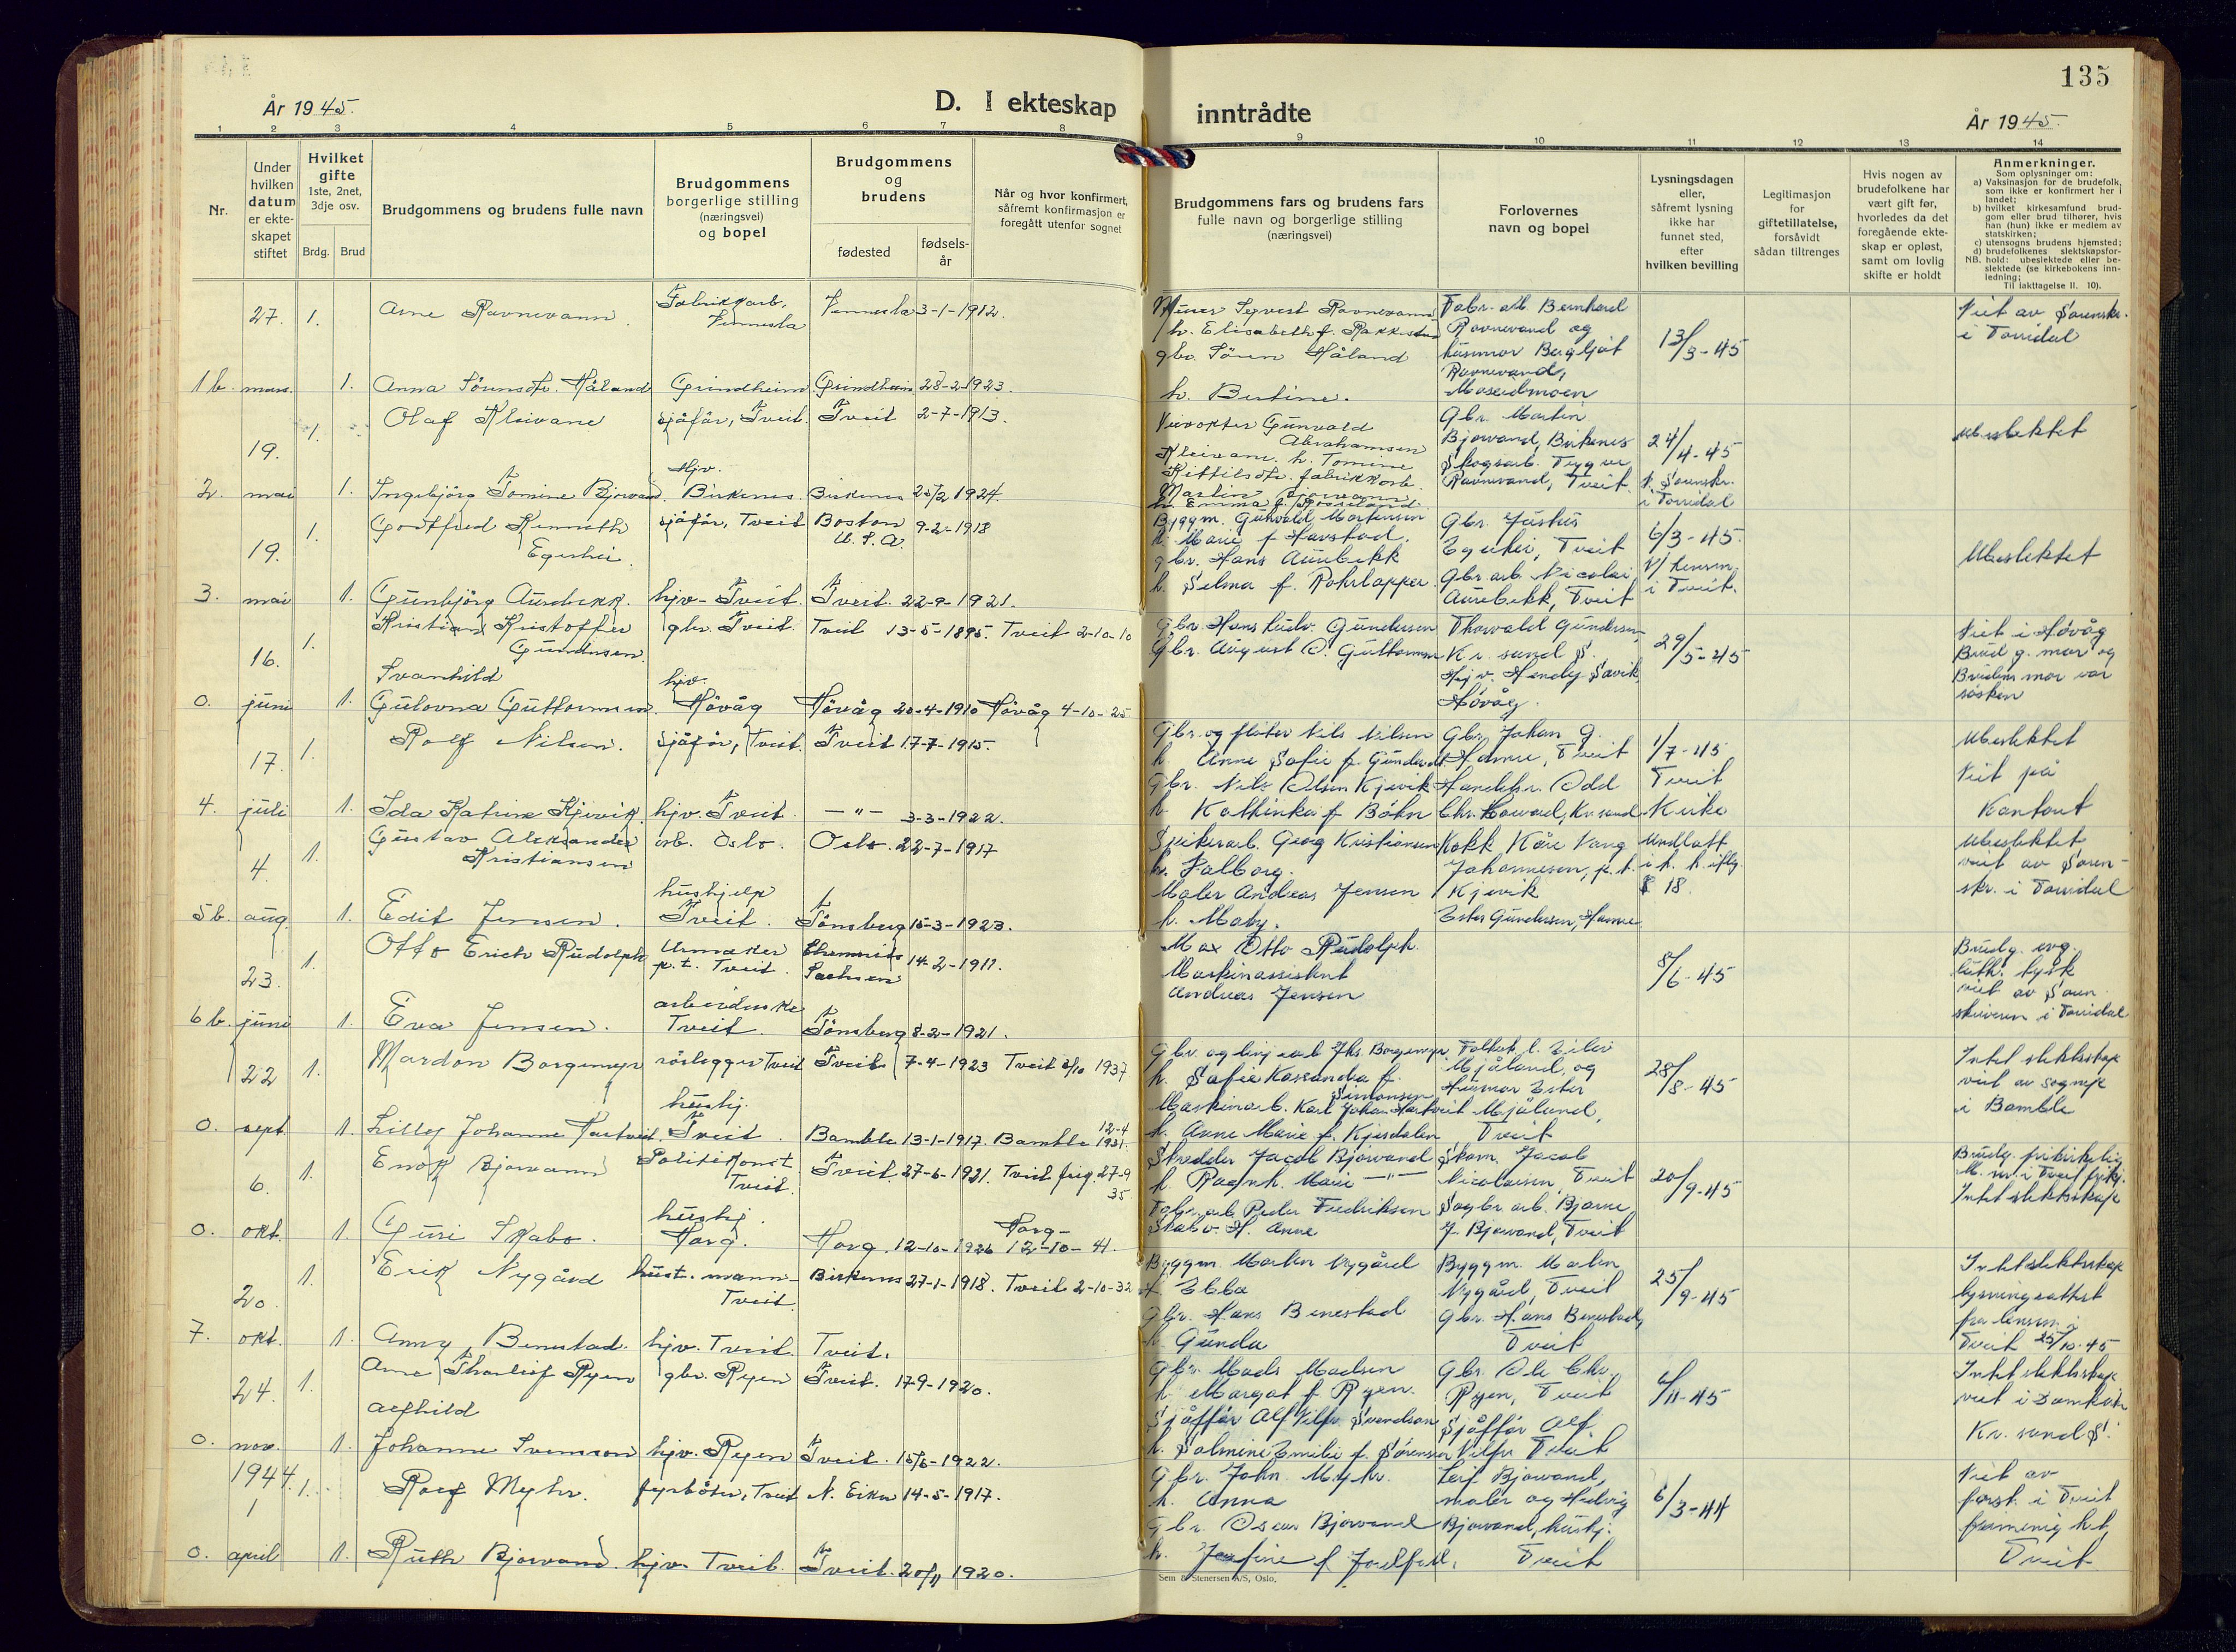 135
År 1945.
D. I ekteskap inntrådte
År 1945.
1 2 3 4 5 6 7 8 9 10 11 12 13 14
Nr.
Under hvilken datum er ekteskapet stiftet
Hvilket gifte
1ste, 2net, 3dje osv.
Brdg. Brud
Brudgommens og brudens fulle navn
Brudgommens borgerlige stilling
(næringsvei)
og bopel
Brudgommens og brudens
fødested
fødsels-
år
Når og hvor konfirmert,
såfremt konfirmasjon er
foregått utenfor sognet
Brudgommens fars og brudens fars
fulle navn og borgerlige stilling
(næringsvei)
Forlovernes
navn og bopel
Lysningsdagen
eller,
såfremt lysning
ikke har
funnet sted,
efter
hvilken bevilling
Legitimasjon
for
giftetillatelse,
forsåvidt
sådan tiltrenges
Hvis nogen av
brudefolkene har
vært gift før,
hvorledes da det
foregående ekte-
skap er opløst,
samt om lovlig
skifte er holdt
Anmerkninger.
Som oplysninger om:
a) Vaksinasjon for de brudefolk,
som ikke er konfirmert her i
landet;
b) hvilket kirkesamfund brud-
gom eller brud tilhører, hvis
han (hun) ikke er medlem av
statskirken;
c) utensogns brudens hjemsted;
d) brudefolkenes slektskapsfor-
hold: ubeslektede eller be-
slektede (se kirkebokens inn-
ledning;
NB.
Til iakttagelse II. 10).
27. 1. Arne Ravnevann Fabrikkarb. Vennesla Vennesla 3-1-1912.
h. Elisabeth f.
Fabr. arb. Bernhard
Ravnevand og
husmor Bergljot
Ravnevand,
Moseidmoen
13/3-45
Viet av Sorenskr.
i Torridal
1 b. mars. 1. Anna Sørensdtr. Håland Grindheim Grindheim 28-2-1923.
gbr. Søren Håland
h. Bertine.
19. 1. Olaf Kleivane sjåfør, Tveit. Tveit 2-7-1913.
Gunvald
Abrahamsen
h. Tomine
Gbr. Martin
Bjorvand, Birkenes
Skogsarb. Trygve
Ravnevand, Tveit.
24/4-45
v. Sorenskr.
i Torridal
Ubeslektet
2. mai 1. Ingebjørg Tomine hjv. Birkenes. Birkenes 1924.
fabrikkarb.
19. 1. Gottfred Kenneth
Egeshei.
sjåfør, Tveit Boston
U.S.A.
9-2-1918
Byggm. Gunvald Mortensen
h. Marie f Havstad.
Gbr. Justus
Egeshei, Tveit
6/3-45.
v/ lensm.
i Tveit.
Ubeslektet
3. mai 1. Gunbjørg Aurebekk. hjv. Tveit. Tveit. 22-9-1921.
gbr. Hans Aurebekk
h. Selma f.
Gbr. arb. Nicolai
Aurebekk, Tveit
16. 1. Kristian Kristoffer
Gundersen.
gbr. Tveit. Tveit 13-5-1895. Tveit 2-10-10
Gbr. Hans Ludv. Gundersen
Thorvald Gundersen,
Kr. sand S.
29/5-45
Viet i Høvåg
Brudg. mor og
Brudens mor var
søsken
0. juni 1. Svanhild
Gulovna Guttormsen. hjv. Høvåg Høvåg 20-4-1910 Høvåg 4-10-25
Gbr. August O. Guttormsen
Høvåg.
17. 1. Rolf Nilsen. sjåfør, Tveit. Tveit 17-7-1915.
Gbr. og fløter Nils Nilsen
h. Anne Sofie f.
Gbr. Johan G.
Hamre, Tveit
1/7-45
Tveit
Kirke
Ubeslektet
Viet på
4. juli 1. Ida Katrine Kjevik. hjv. Tveit. -"- 3-3-1922.
Gbr. Nils Olsen Kjevik
h. Kathinka f. Bohn
Odd
4. 1. Gustav Aleksander
Kristiansen
arb. Oslo. Oslo. 22-7-1917
Georg Kristiansen
h. Valborg.
Kokk Kåre Vang
Johannesen, p.t.
Kjevik
§ 18.
Ubeslektet
viet av Soren-
skr. i Torridal
5 b. aug. 1. Edit Jensen. hushjelp Tveit. Tønsberg 15-3-1923.
Maler Andreas Jensen
Ester Gundersen, Hamre
23. 1. Otto Erich Rudolph Urmaker
p.t. Tveit.
Chemnitz
Sachsen
14-2-1911.
Max Otto Rudolph.
Maskinassistent
8/6-45
Brudg. evg.
luth. tysk
viet av Soren-
skriveren i Torridal
6 b. juni 1. Eva Jensen. arbeiderske
Tveit. Tønsberg 8-2-1921.
Andreas Jensen
22 1. Mardon Borgemyr rørlegger Tveit Tveit. 7-4-1923 Tveit 3/10 1937
h. Sofie Kassandra f.
Simonsen
Mjåland, og
Husmor Ester
Mjåland,
Tveit
28/8-45
Intet slektskap
viet av sognepr.
i Bamble
0. sept. 1. Lilly Johanne Hartveit hushj.
Tveit. Bamble 13-1-1917. Bamble 12-4 1931.
Maskinarb. Karl Johan Hartveit
h. Anne Marie f. Kjerdalen
6. 1. Enok Bjorvann Politikonst.
Tveit. Tveit. 27-6-1921. Tveit frig. 27-9 35
Skredder Jacob Bjorvand
h. Ragnh. Marie -"-
Skom. Jacob
Nicolaisen, Tveit
20/9-45
Brudg. frikirkelig
Intet slektskap
0. okt. 1. Guri Skabo. hushj.
Horg. Horg. 12-10-1926 Horg-
12-10-41.
Fabr. arb. Peder Fredriksen
Skabo. H. Anne
Sagbr. arb. Bjarne
J. Bjorvand, Tveit
20. 1. Erik Nygård
Tveit.
Birkenes 27-1-1918. Tveit 2-10-32
Byggm. Morten Nygård
h. Ebba
Byggm. Morten
Nygård, Tveit
25/9-45
Intet slektskap
lysningsattest
fra lensm. i
Tveit 25/10-45
7. okt. 1. Anny Benestad. hjv. Tveit. Tveit.
Gbr. Hans Benestad
h. Gunda
Gbr. Hans Benestad,
Tveit
24. 1. Arne Thorleif Ryen gbr. Ryen Tveit. 17-9-1920.
Gbr. Mads Madsen
h. Margot f. Ryen.
Gbr. Ole Chr.
Ryen, Tveit
6/11-45
Intet slektskap
viet i Domkirk.
Kr. sand S.
0. nov. 1. Alfhild
Johanne Svenson hjv. Ryen Tveit. 15/6-1922.
Sjåffør Alf Vilfr. Svendsen
h. Salmine Emilie f. Sørensen
Sjåffør Alf
Vilfr. Tveit
1944.
1 1. Rolf Myhr. fyrbøter, Tveit N. Eiker 14-5-1917.
Gbr. John Myhr.
h. Anna
Leif Bjorvand,
maler og Hedvig
Bjorvand, hushj.
Tveit
6/3-44
Viet av
forst. i Tveit
frimenighet,
Tveit
0. april 1. Ruth Bjorvand. hjv. Tveit. Tveit. 20/11 1920.
Gbr. Oscar Bjorvand
h. Josefine f.
Sem & Stenersen A/S, Oslo.